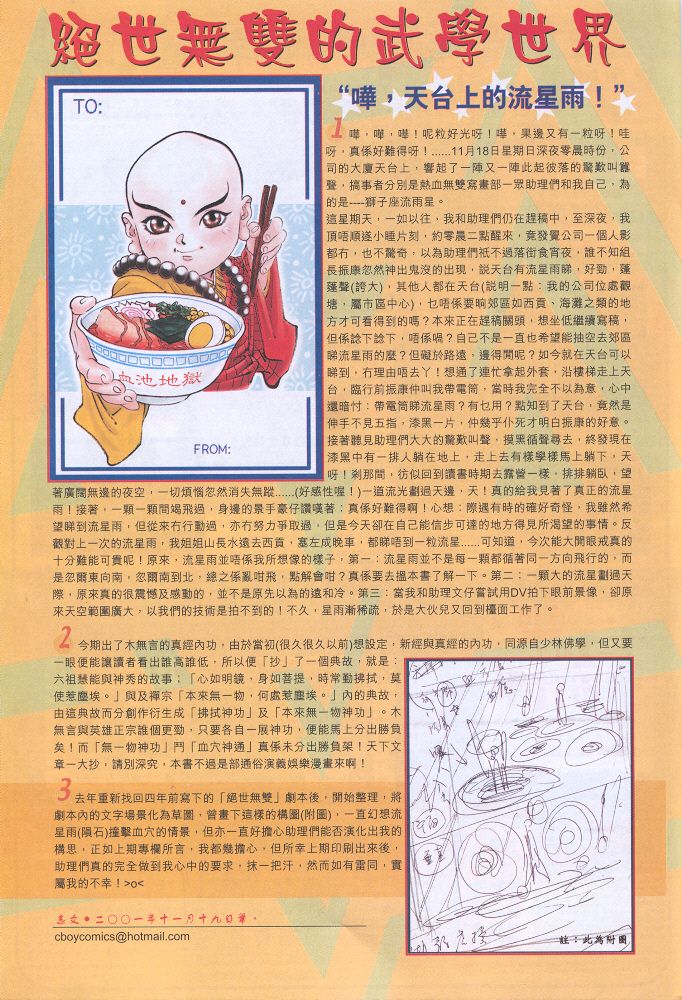 絕世無雙的武學世界
“嘩，天台上的流星雨！”
TO:
血池地獄
FROM:
1 嘩，嘩，嘩！呢粒好光呀！嘩，果邊又有一粒呀！哇
呀，真係好難得呀！......11月18日星期日深夜零晨時份，公
司的大廈天台上，響起了一陣又一陣此起彼落的驚歎叫囂
聲，搞事者分別是熱血無雙寫畫部一眾助理們和我自己，為
的是----獅子座流雨星。
這星期天，一如以往，我和助理們仍在趕稿中，至深夜，我
頂唔順遂小睡片刻，約零晨二點醒來，竟發覺公司一個人影
都冇，也不驚奇，以為助理們衹不過落街食宵夜，誰不知組
長振康忽然神出鬼沒的出現，説天台有流星雨睇，好勁，蓬
蓬聲(誇大)，其他人都在天台(説明一點：我的公司位處觀
塘，屬市區中心)，乜唔係要晌郊區如西貢、海灘之類的地
方才可看得到的嗎？本來正在趕稿關頭，想坐低繼續寫稿，
但係諗下諗下，唔係喎？自己不是一直也希望能抽空去郊區
睇流星雨的麼？但礙於路遠，邊得閒呢？如今就在天台可以
睇到，冇理由唔去丫！想通了連忙拿起外套，沿樓梯走上天
台，臨行前振康仲叫我帶電筒，當時我完全不以為意，心中
還暗忖：帶電筒睇流星雨？有乜用？點知到了天台，竟然是
伸手不見五指，漆黑一片，仲幾乎仆死才明白振康的好意。
接著聽見助理們大大的驚歎叫聲，摸黑循聲尋去，終發現在
漆黑中有一排人躺在地上，走上去有樣學樣馬上躺下，天
呀！剎那間，彷似回到讀書時期去露營一樣，排排躺臥，望
著廣闊無邊的夜空，一切煩惱忽然消失無蹤......(好感性喔！)一道流光劃過天邊，天！真的給我見著了真正的流星
雨！接著，一顆一顆間竭飛過，身邊的景手豪仔讚嘆著：真係好難得啊！心想：際遇有時的確好奇怪，我雖然希
望睇到流星雨，但從來冇行動過，亦冇努力爭取過，但是今天卻在自己能信步可達的地方得見所渴望的事情。反
觀對上一次的流星雨，我姐姐山長水遠去西貢，塞左成晚車，都睇唔到一粒流星......可知道，今次能大開眼戒真的
十分難能可貴呢！原來，流星雨並唔係我所想像的樣子，第一：流星雨並不是每一顆都循著同一方向飛行的，而
是忽爾東向南，忽爾南到北，總之係亂咁飛，點解會咁？真係要去搵本書了解一下。第二：一顆大的流星劃過天
際，原來真的很震憾及感動的，並不是原先以為的遠和冷。第三：當我和助理文仔嘗試用DV拍下眼前景像，卻原
來天空範圍廣大，以我們的技術是拍不到的！不久，星雨漸稀疏，於是大伙兒又回到檯面工作了。
2 今期出了木無言的真經內功，由於當初(很久很久以前)想設定，新經與真經的內功，同源自少林佛學，但又要
一眼便能讓讀者看出誰高誰低，所以便「抄」了一個典故，就是：
六祖慧能與神秀的故事；「心如明鏡，身如菩提，時常勤拂拭，莫
使惹塵埃。」與及禪宗「本來無一物，何處惹塵埃。」內的典故，
由這典故而分創作衍生成「拂拭神功」及「本來無一物神功」。木
無言與英雄正宗誰個更勁，只要各自一展神功，便能馬上分出勝負
矣！而「無一物神功」鬥「血穴神通」真係未分出勝負架！天下文
章一大抄，請別深究，本書不過是部通俗演義娛樂漫畫來啊！
3 去年重新找回四年前寫下的「絕世無雙」劇本後，開始整理，將
劇本內的文字場景化為草圖，曾畫下這樣的構圖(附圖)，一直幻想流
星雨(隕石)撞擊血穴的情景，但亦一直好擔心助理們能否演化出我的
構思，正如上期專欄所言，我都幾擔心，但所幸上期印刷出來後，
助理們真的完全做到我心中的要求，抹一把汗，然而如有雷同，實
屬我的不幸！>o<
志文●二○○一年十一月十九日筆。
cboycomics@hotmail.com
註：此為附圖